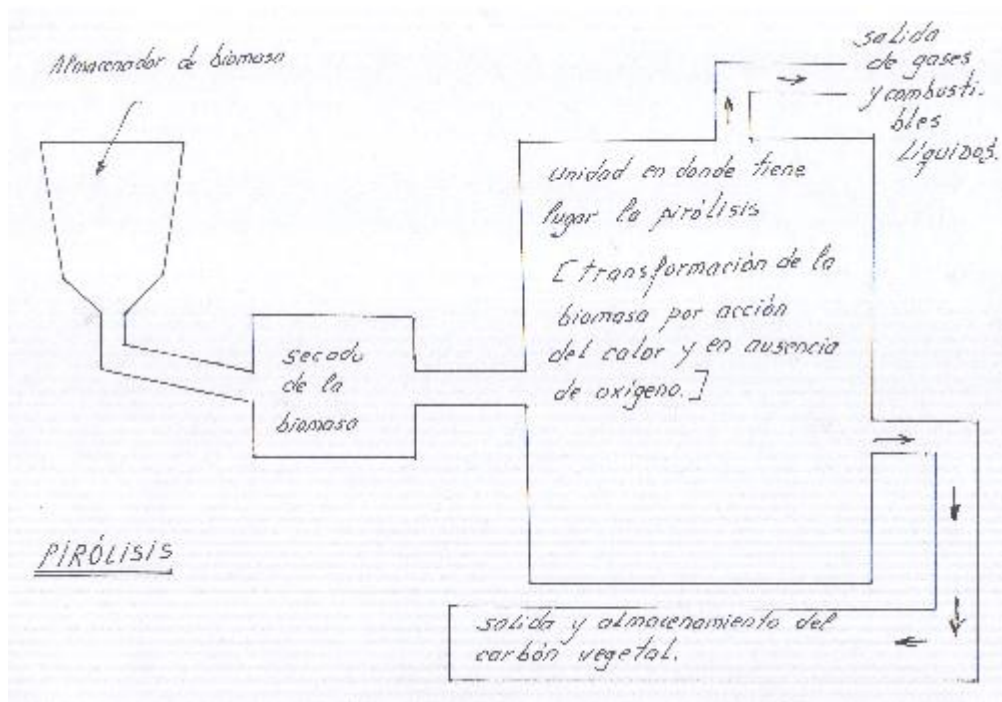 Almacenador de biomasa
salida
de gases
y combusti-
bles
Líquidos.
unidad en donde tiene
lugar la pirólisis
[transformación de la
biomasa por acción
del calor y en ausencia
de oxígeno.]
secado
de la
biomasa
PIRÓLISIS
salida y almacenamiento del
carbón vegetal.